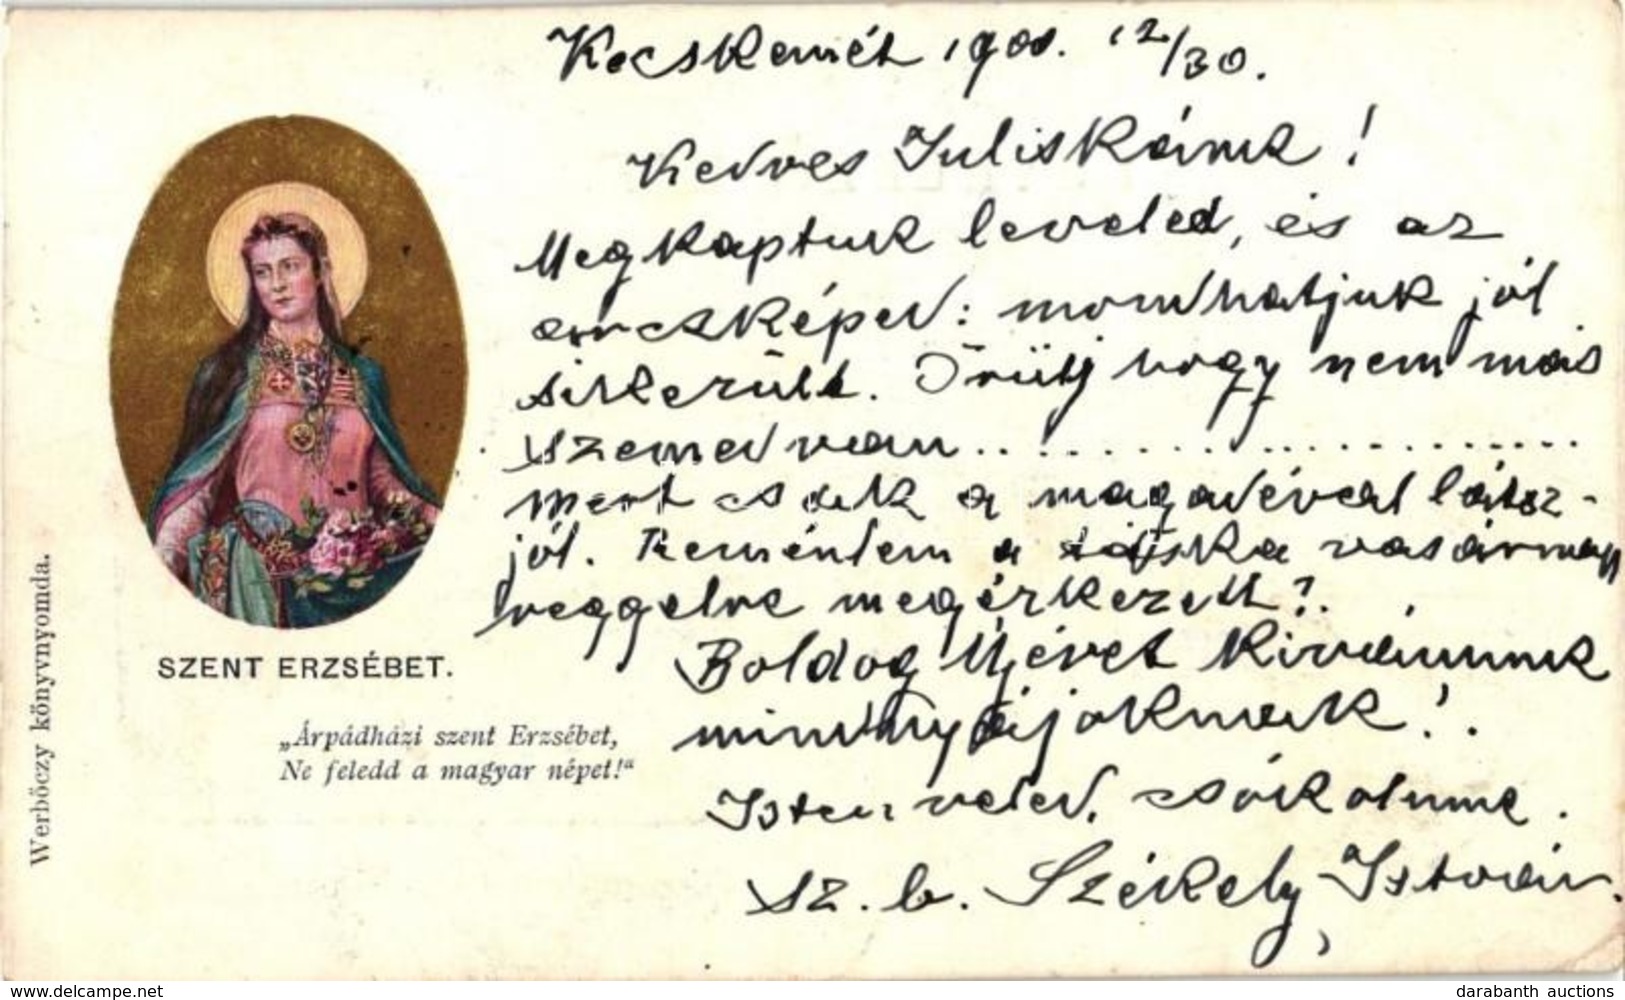 Kecskemét 1900. 12/30.
Kedves Juliskánk!
Megkaptuk leveled, és az
arczképed: mondhatjuk jól
sikerült. Örülj hogy nem más
szemed van....................
mert csak a magadéval látsz-
jól. Reméntem a táska vasárnap
reggelre megérkezett?.
Boldog Újévet kivánunk
mindnyájoknak!.
Isten veled, csókolunk.
sz. b. Székely István,
SZENT ERZSÉBET.
„Árpádházi szent Erzsébet,
Ne feledd a magyar népet!“
Werbőczy könyvnyomda.
www.delcampe.net
darabanth auctions